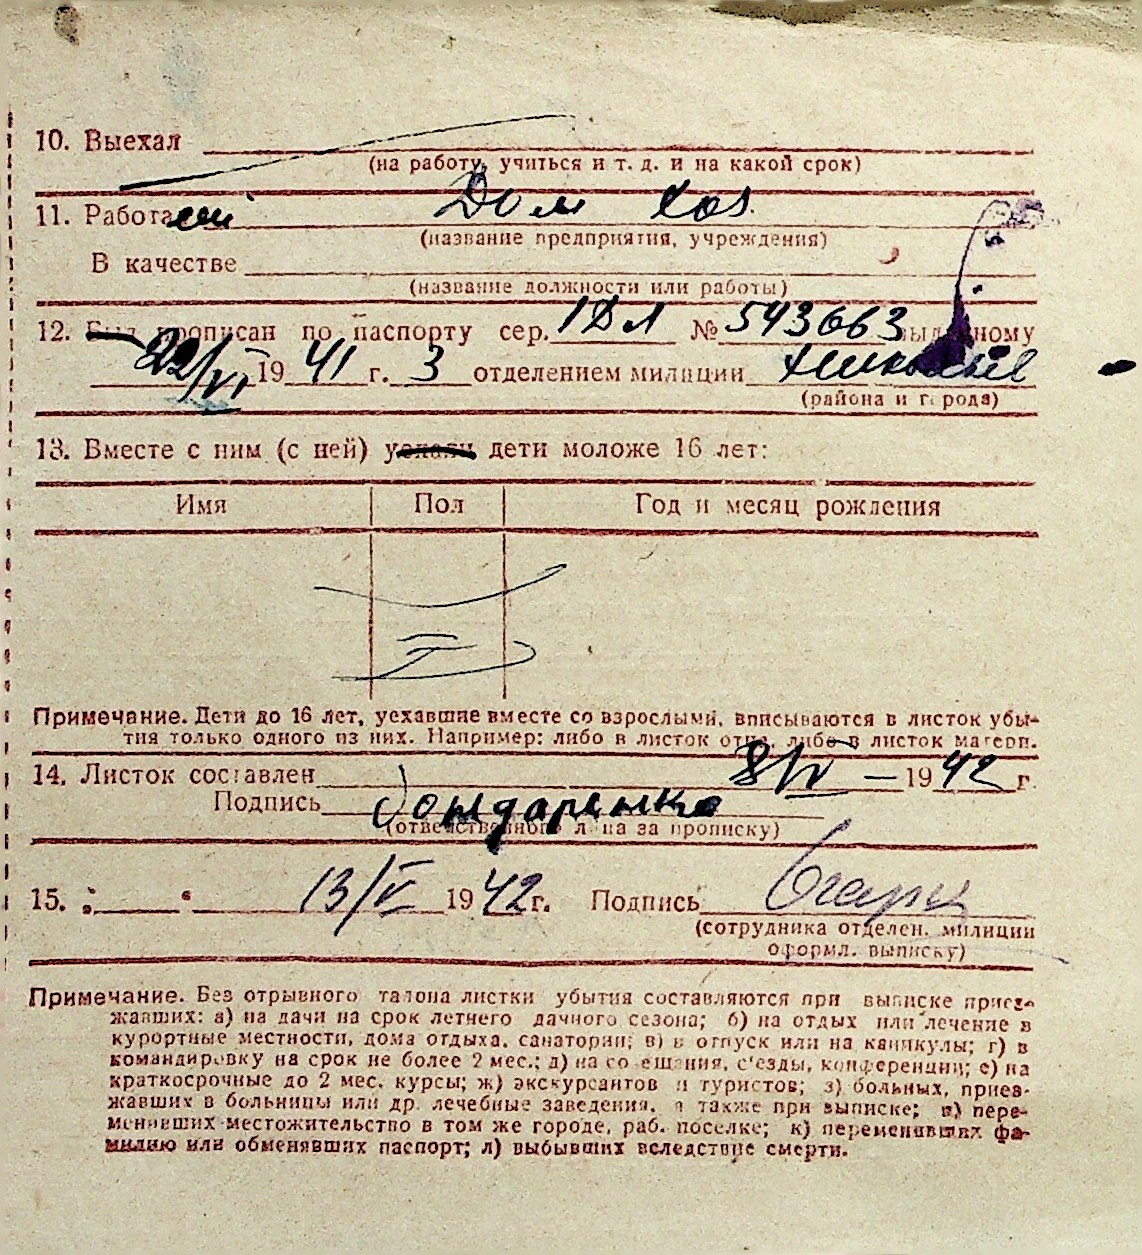 10. Выехал
(на работу, учиться и т. д. и на какой срок)
11. Работа Дом хоз.
(название предприятия, учреждения)
В качестве
(название должности или работы)
12. Был прописан по паспорту сер. 1ДЛ № 543663 выданному
22/VI 1941 г. 3 отделением милиции
(района и города)
13. Вместе с ним (с ней) уехали дети моложе 16 лет:
Имя Пол Год и месяц рождения
Примечание. Дети до 16 лет, уехавшие вместе со взрослыми, вписываются в листок убы-
тия только одного из них. Например: либо в листок отца, либо в листок матери.
14. Листок составлен 8/IV — 1942 г.
Подпись Бондаренко
(ответственного лица за прописку)
15. „ “ 13/V 1942 г. Подпись
(сотрудника отделен. милиции
оформл. выписку)
Примечание. Без отрывного талона листки убытия составляются при выписке приез-
жавших: а) на дачи на срок летнего дачного сезона; б) на отдых или лечение в
курортные местности, дома отдыха, санатории; в) в отпуск или на каникулы; г) в
командировку на срок не более 2 мес.; д) на совещания, съезды, конференции; е) на
краткосрочные до 2 мес. курсы; ж) экскурсантов и туристов; з) больных, приез-
жавших в больницы или др. лечебные заведения, а также при выписке; и) пере-
менивших местожительство в том же городе, раб. поселке; к) переменивших фа-
милию или обменявших паспорт; л) выбывших вследствие смерти.